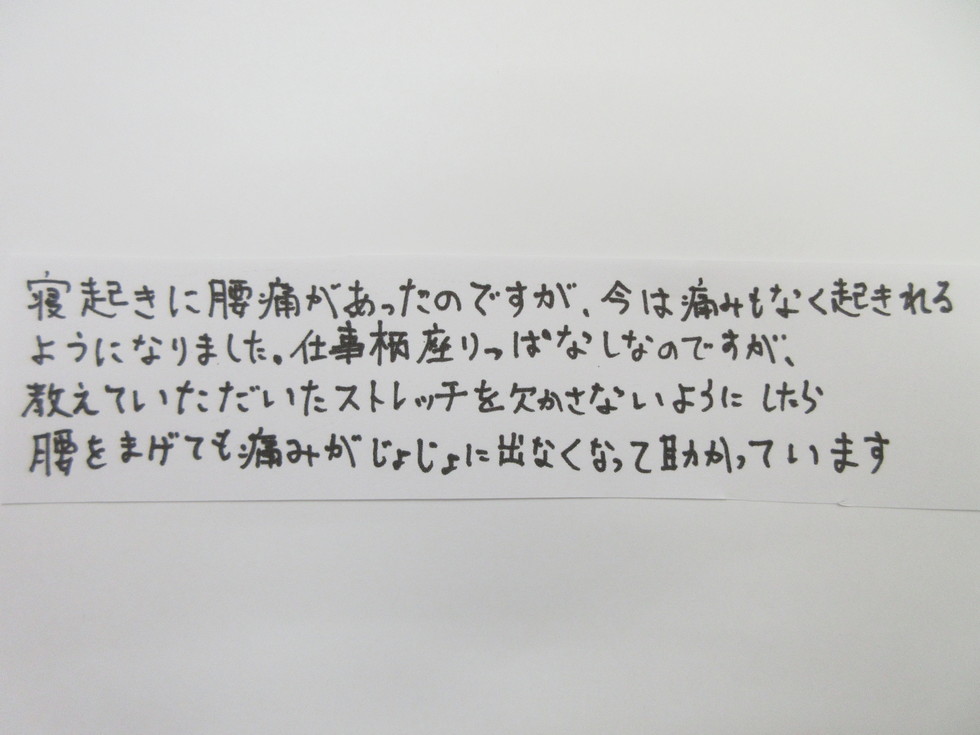 寝起きに腰痛があったのですが、今は痛みもなく起きれる
ようになりました。仕事柄座りっぱなしなのですが、
教えていただいたストレッチを欠かさないようにしたら
腰をまげても痛みがじょじょに出なくなって助かっています